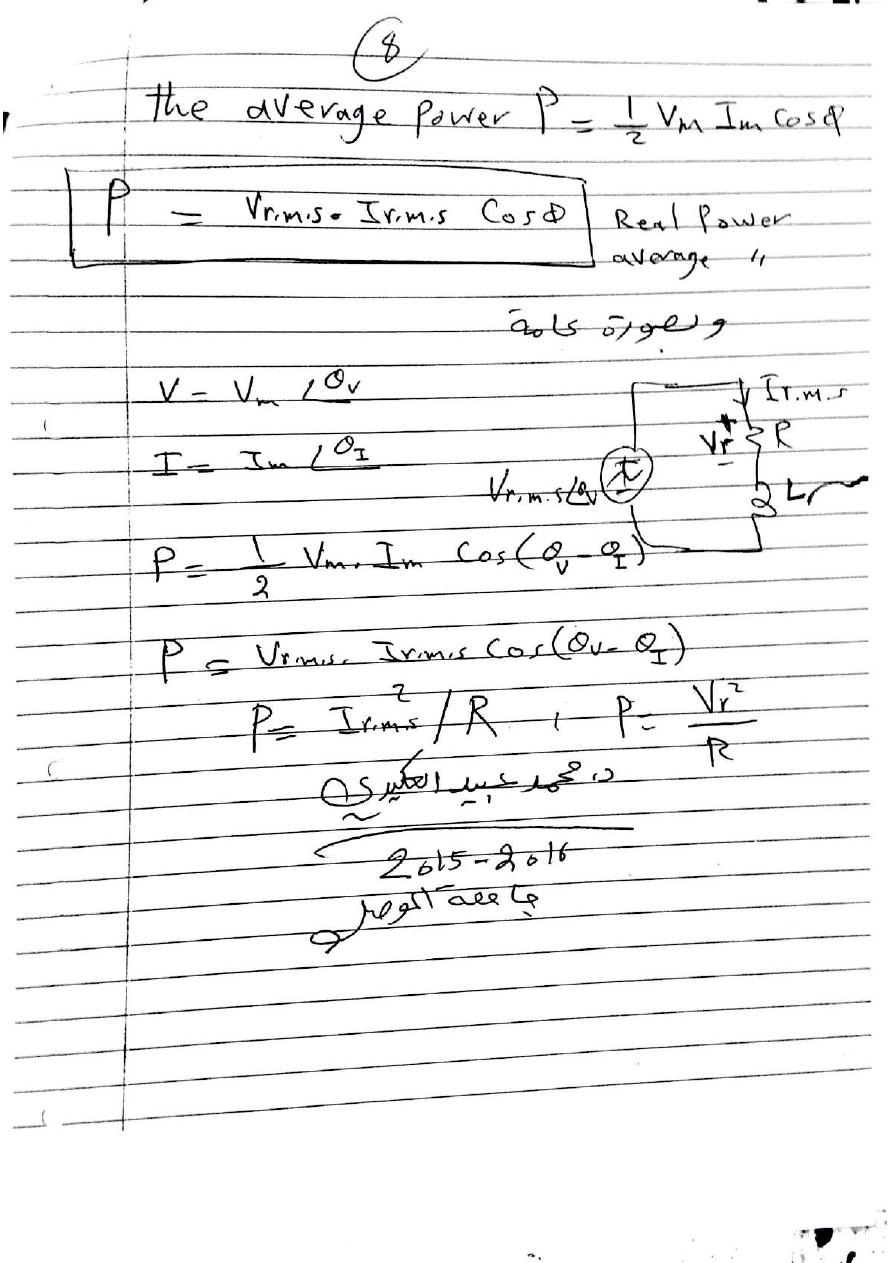 8
the average Power P = 1/2 Vm Im Cosφ
P = Vr.m.s. Ir.m.s Cosφ Real Power
average "
وبصورة عامة
V = Vm ∠θv
I = Im ∠θI
Ir.m.s
Vr + - R
Vr.m.s∠θv L
P = 1/2 Vm. Im Cos(θv - θI)
P = Vr.m.s. Ir.m.s Cos(θv - θI)
P = Ir.m.s² / R , P = Vr²/R
د. محمد عبيد
2015-2016
جامعة الموصل